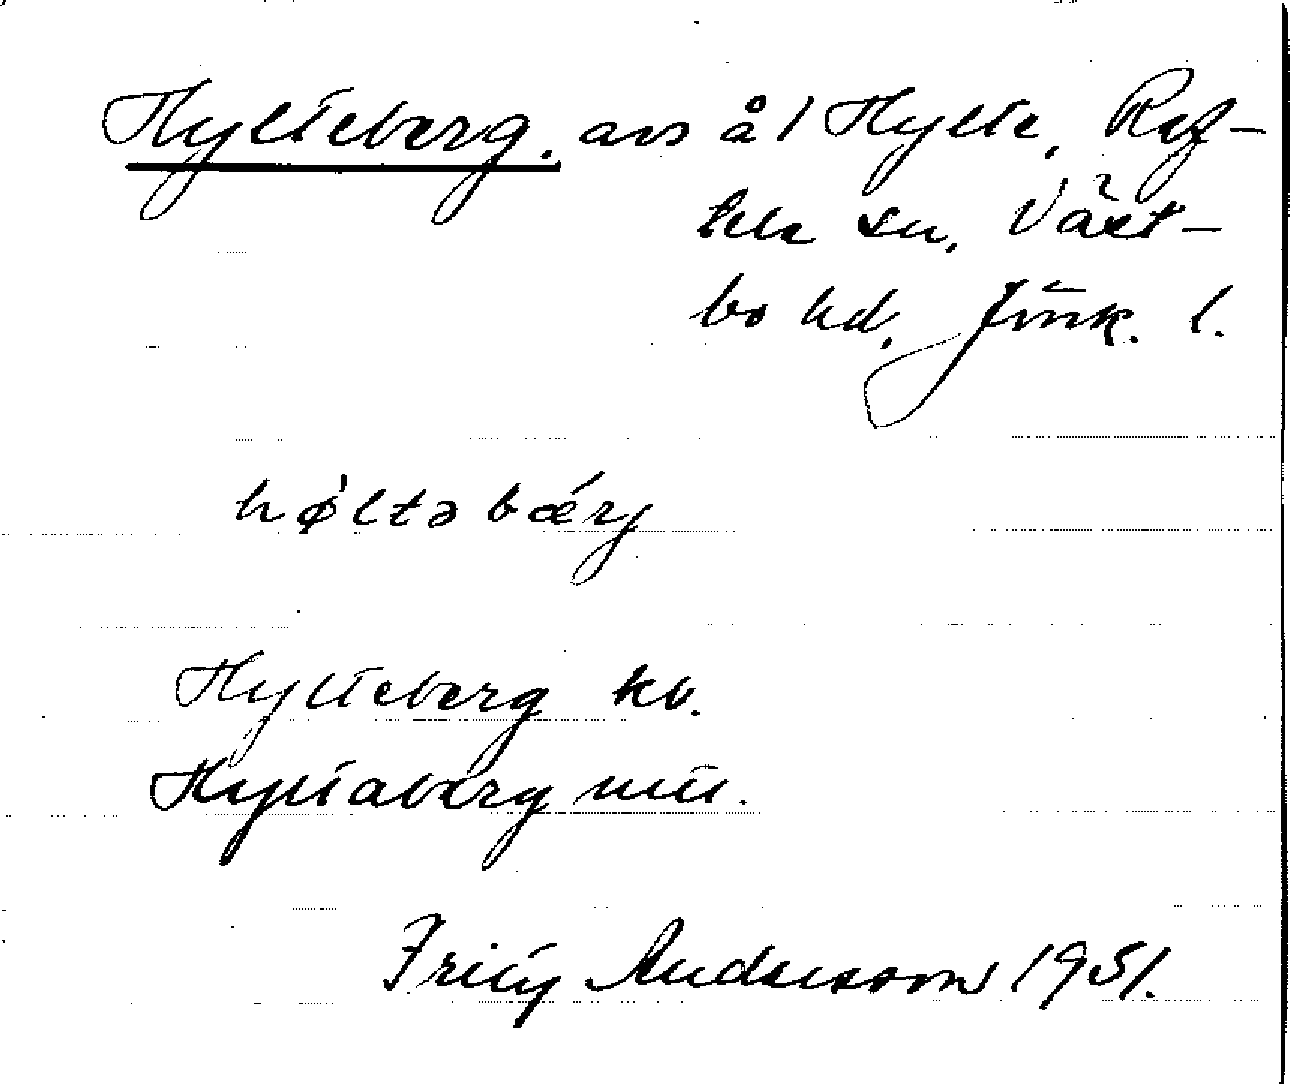 Hylteberg. avs å 1 Hylte, Ref-
tele sn, Väst-
bo hd, Jönk. l.
hø̍ltəbǽrj
Hylteberg kb.
Hyltaberg mtl.
Fritiof Andersson 1951.